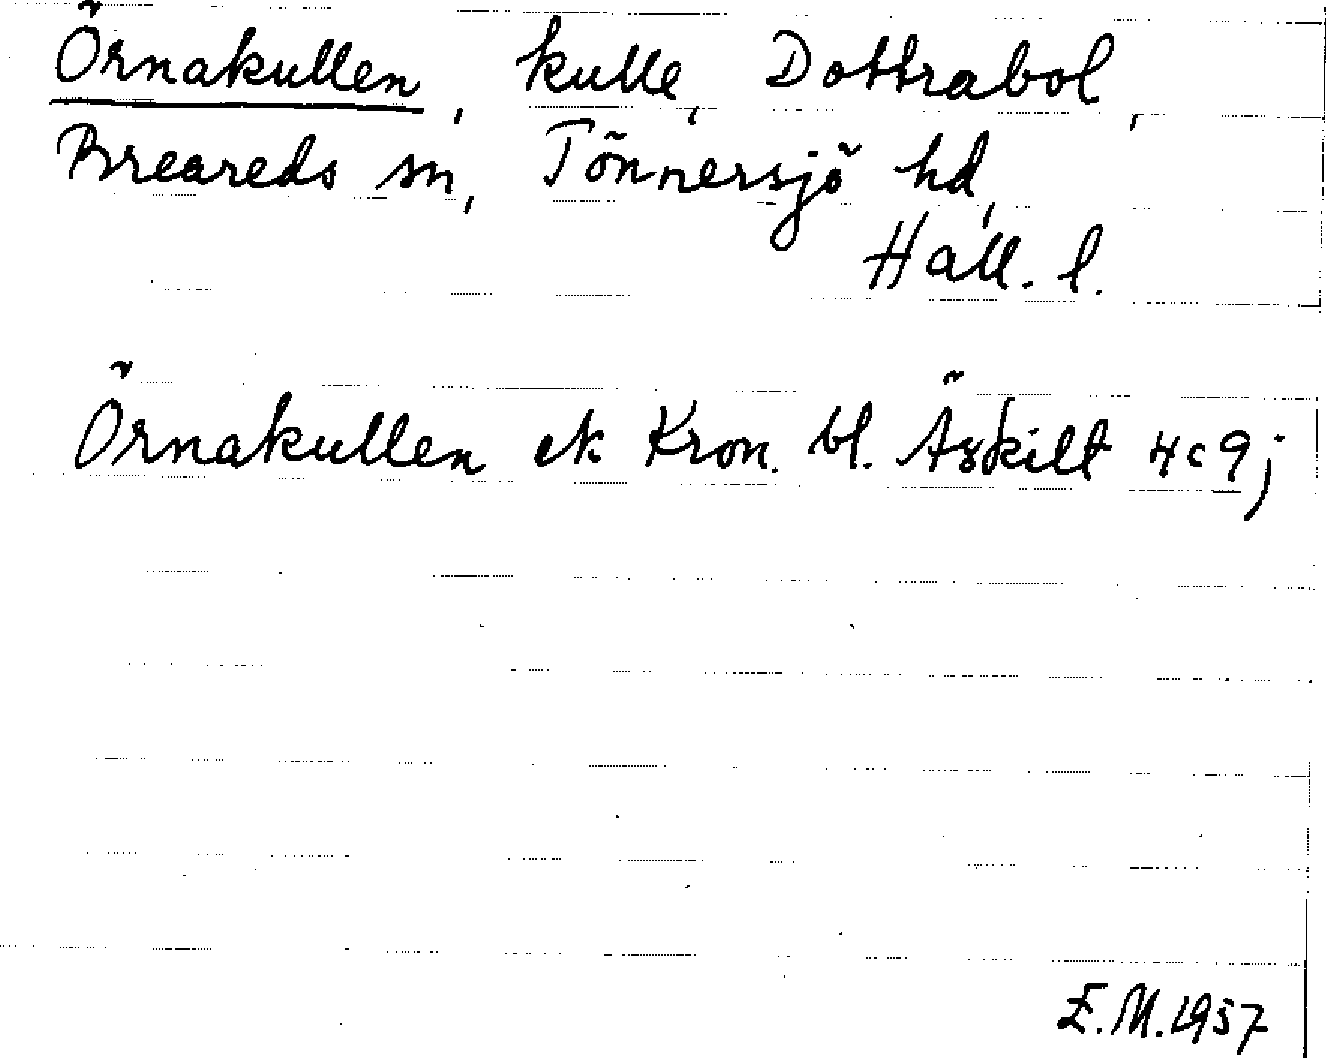 Örnakullen, kulle, Dottrabol,
Breareds sn, Tönnersjö hd,
Hall. l.
Örnakullen ek Kron. bl. Äskilt 4c 9j
E.M. 1957